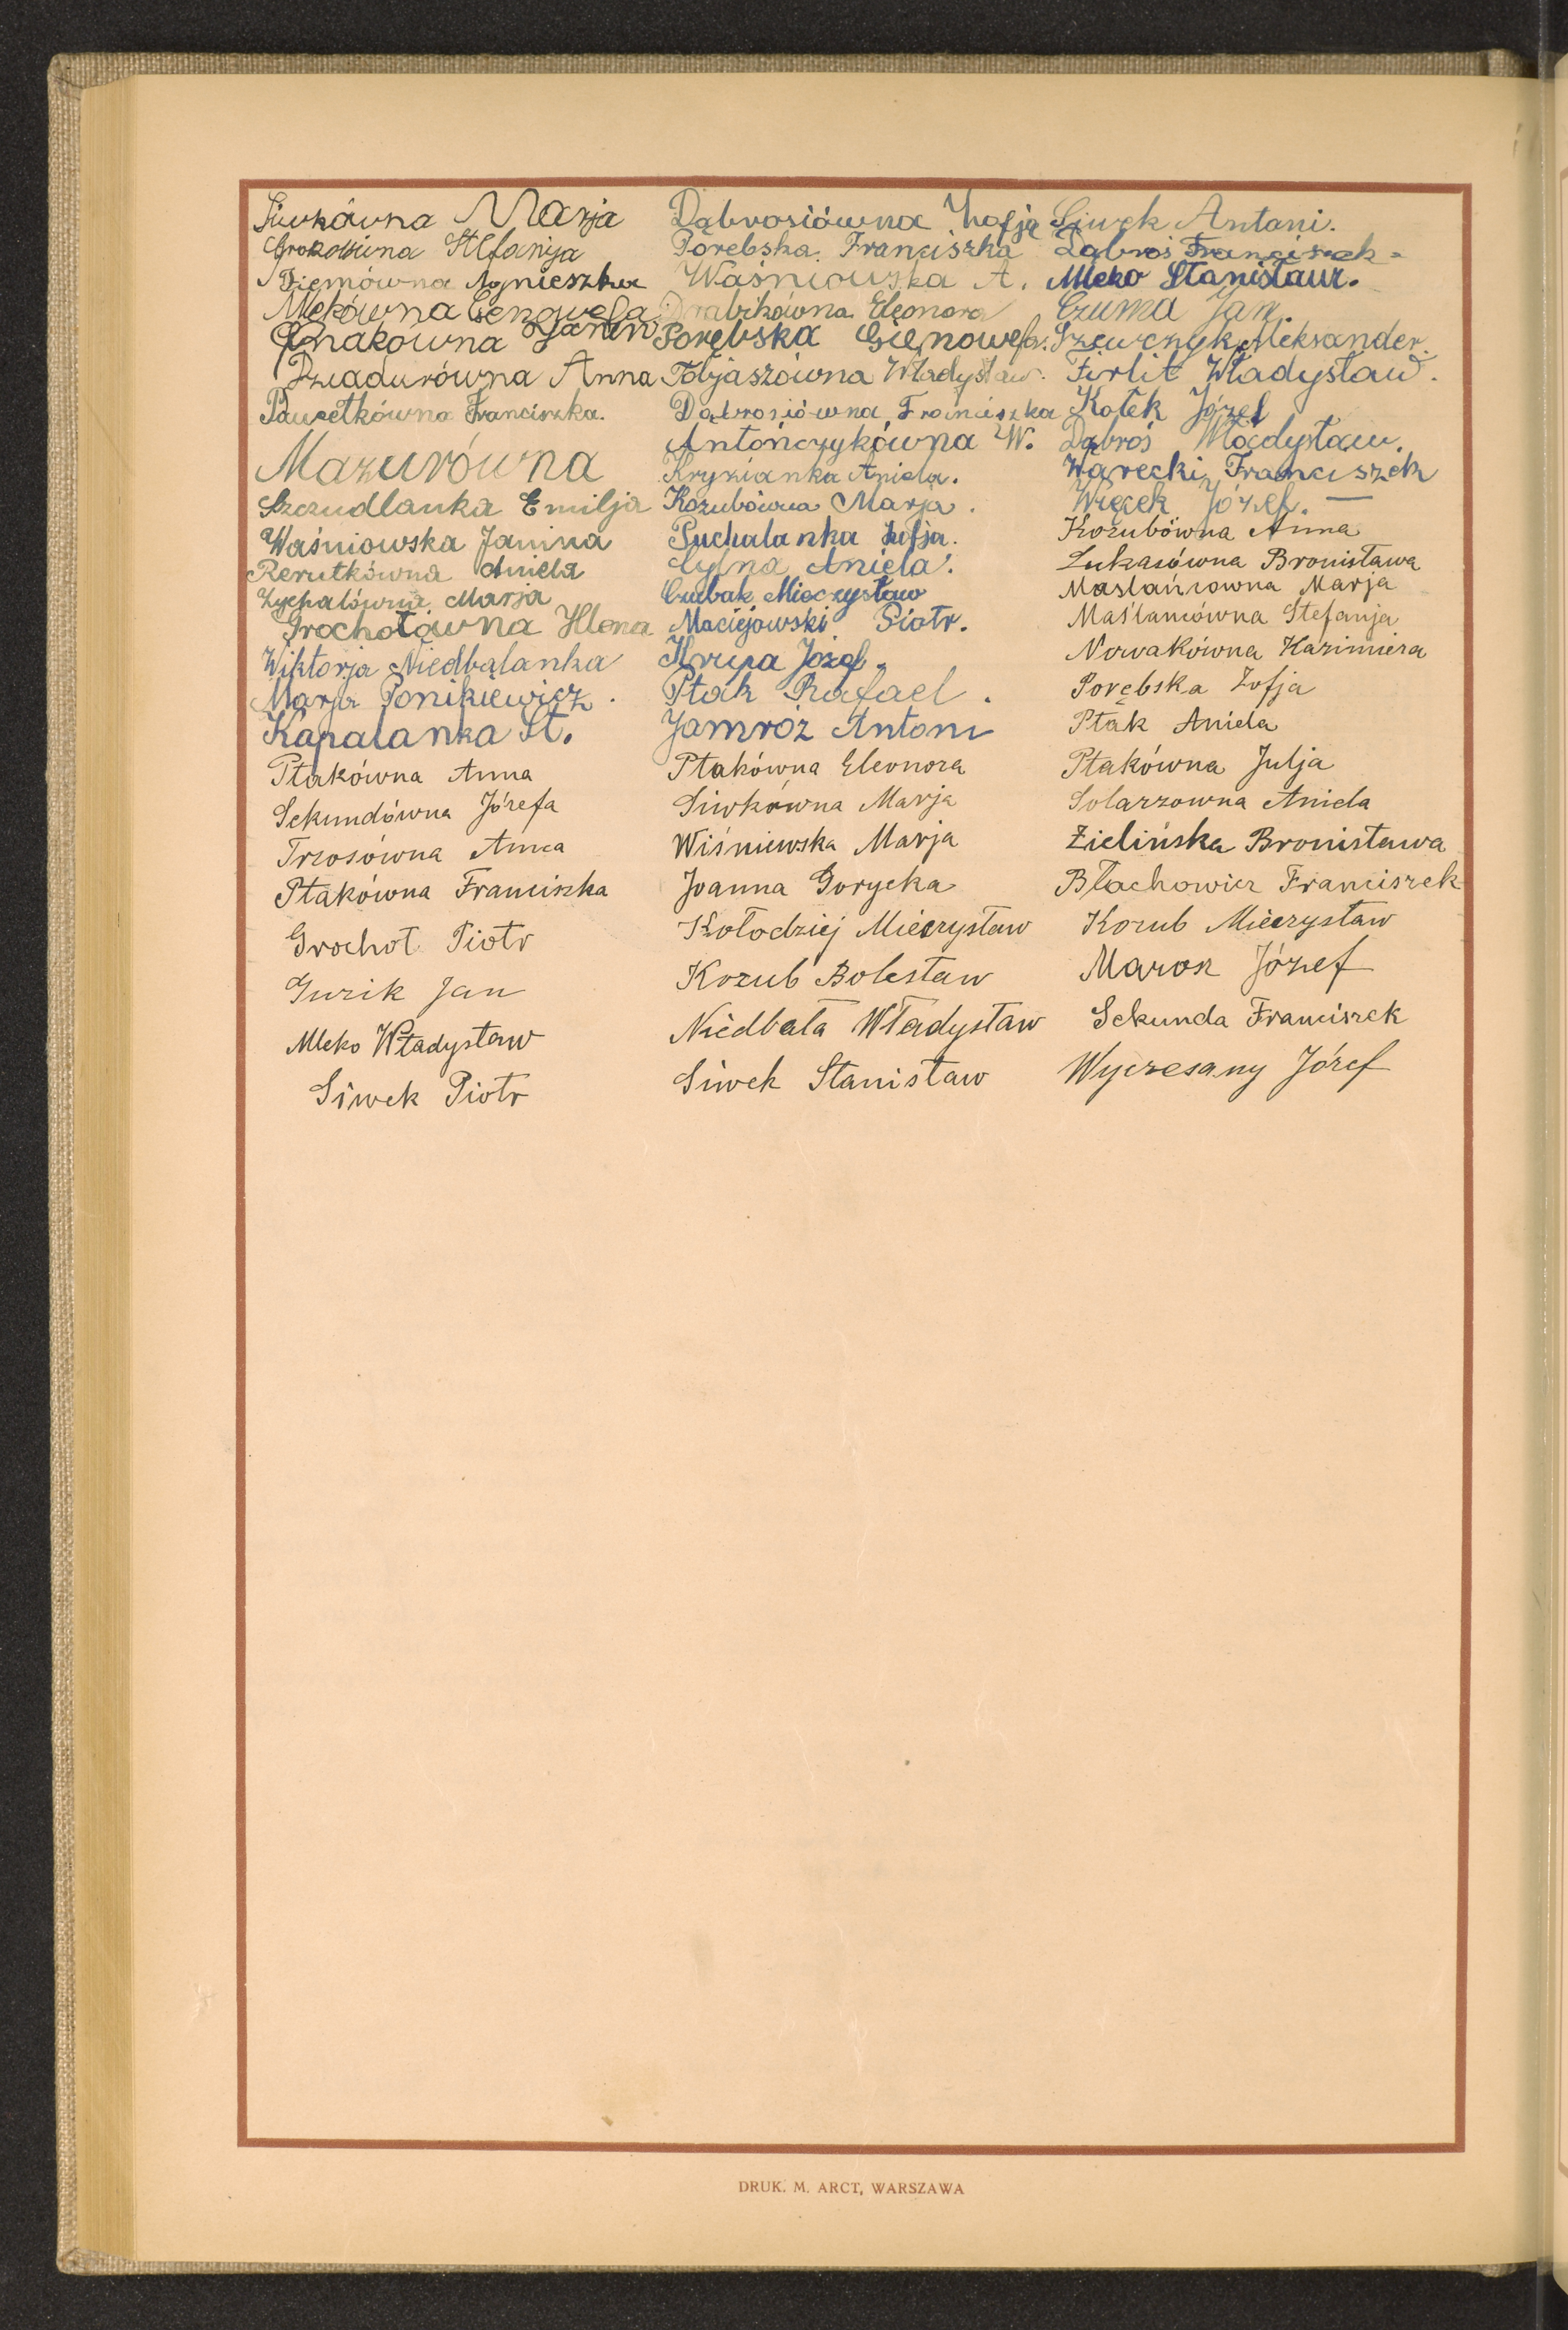 Siwkówna Marja
Stefanja
Agnieszka
Mlekówna Genowefa
Janina
Dziadurówna Anna
Pawełkówna Franciszka.
Mazurówna
Szczudlanka Emilja
Waśniowska Janina
Rerutkówna Aniela
Zychalówna Marja
Grochotówna Hlena
Wiktorja Niedbalanka
Marja Ponikiewicz.
Kapalanka St.
Ptakówna Anna
Sekundówna Józefa
Trzosówna Anna
Ptakówna Franciszka
Grochot Piotr
Guzik Jan
Mleko Władysław
Siwek Piotr
Dąbrosiówna Zhofja
Porębska Franciszka
Waśniowska A.
Drabikówna Eleonora
Porębska Gienowefa.
Tobjaszówna Władysław.
Dąbrosiówna Franciszka
Antończykówna W.
Kryzianka Aniela.
Kozubówna Marja.
Puchalanka Zofja.
Aniela.
Cubak Mieczysław
Maciejowski Piotr.
Krupa Józef.
Ptak Rafael.
Jamróz Antoni
Ptakówna Eleonora
Siwkówna Marja
Wiśniewska Marja
Joanna Gorycka
Kołodziej Mieczysław
Kozub Bolesław
Niedbała Władysław
Siwek Stanisław
Siwek Antoni.
Dąbroś Franciszek
Mleko Stanisław.
Czuma Jan.
Szewczyk Aleksander.
Firlit Władysław.
Kotek Józef
Dąbroś Władysław.
Warecki Franciszek
Więcek Józef. —
Kozubówna Anna
Łukasiówna Bronisława
Maslańcowna Marja
Maślancówna Stefanja
Nowakówna Kazimiera
Porębska Zofja
Ptak Aniela
Ptakówna Julja
Solarzowna Aniela
Zielińska Bronisława
Błachowicz Franciszek
Kozub Mieczysław
Józef
Sekunda Franciszek
Wyczesany Józef
DRUK. M. ARCT, WARSZAWA